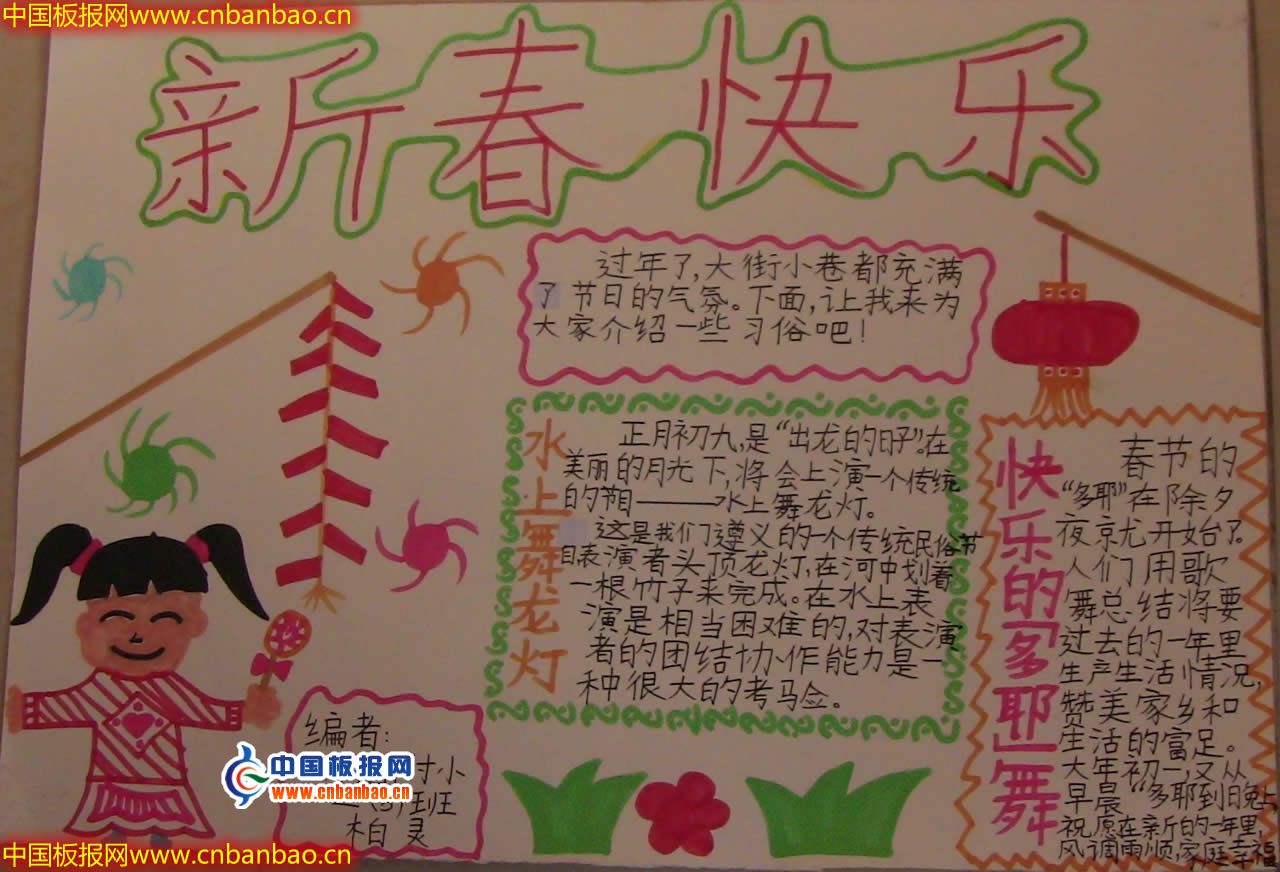 中国板报网www.cnbanbao.cn
中国板报网www.cnbanbao.cn
新春快乐
过年了,大街小巷都充满
了节日的气氛。下面,让我来为
大家介绍一些习俗吧!
水上舞龙灯
正月初九,是“出龙的日子”。在
美丽的月光下,将会上演一个传统
的节目———水上舞龙灯。
这是我们遵义的一个传统民俗节
目表演者头顶龙灯,在河中划着
一根竹子来完成。在水上表
演是相当困难的,对表演
者的团结协作能力是一
种很大的考验。
快乐的“多耶”舞
春节的
“多耶”在除夕
夜就开始了。
人们用歌
舞总结将要
过去的一年里
生产生活情况,
赞美家乡和
生活的富足。
大年初一,又从
早晨“多耶”到晚上
祝愿在新的一年里,
风调雨顺,家庭幸福
编者:
村小
班
柏灵
中国板报网
www.cnbanbao.cn
中国板报网www.cnbanbao.cn
中国板报网www.cnbanbao.cn